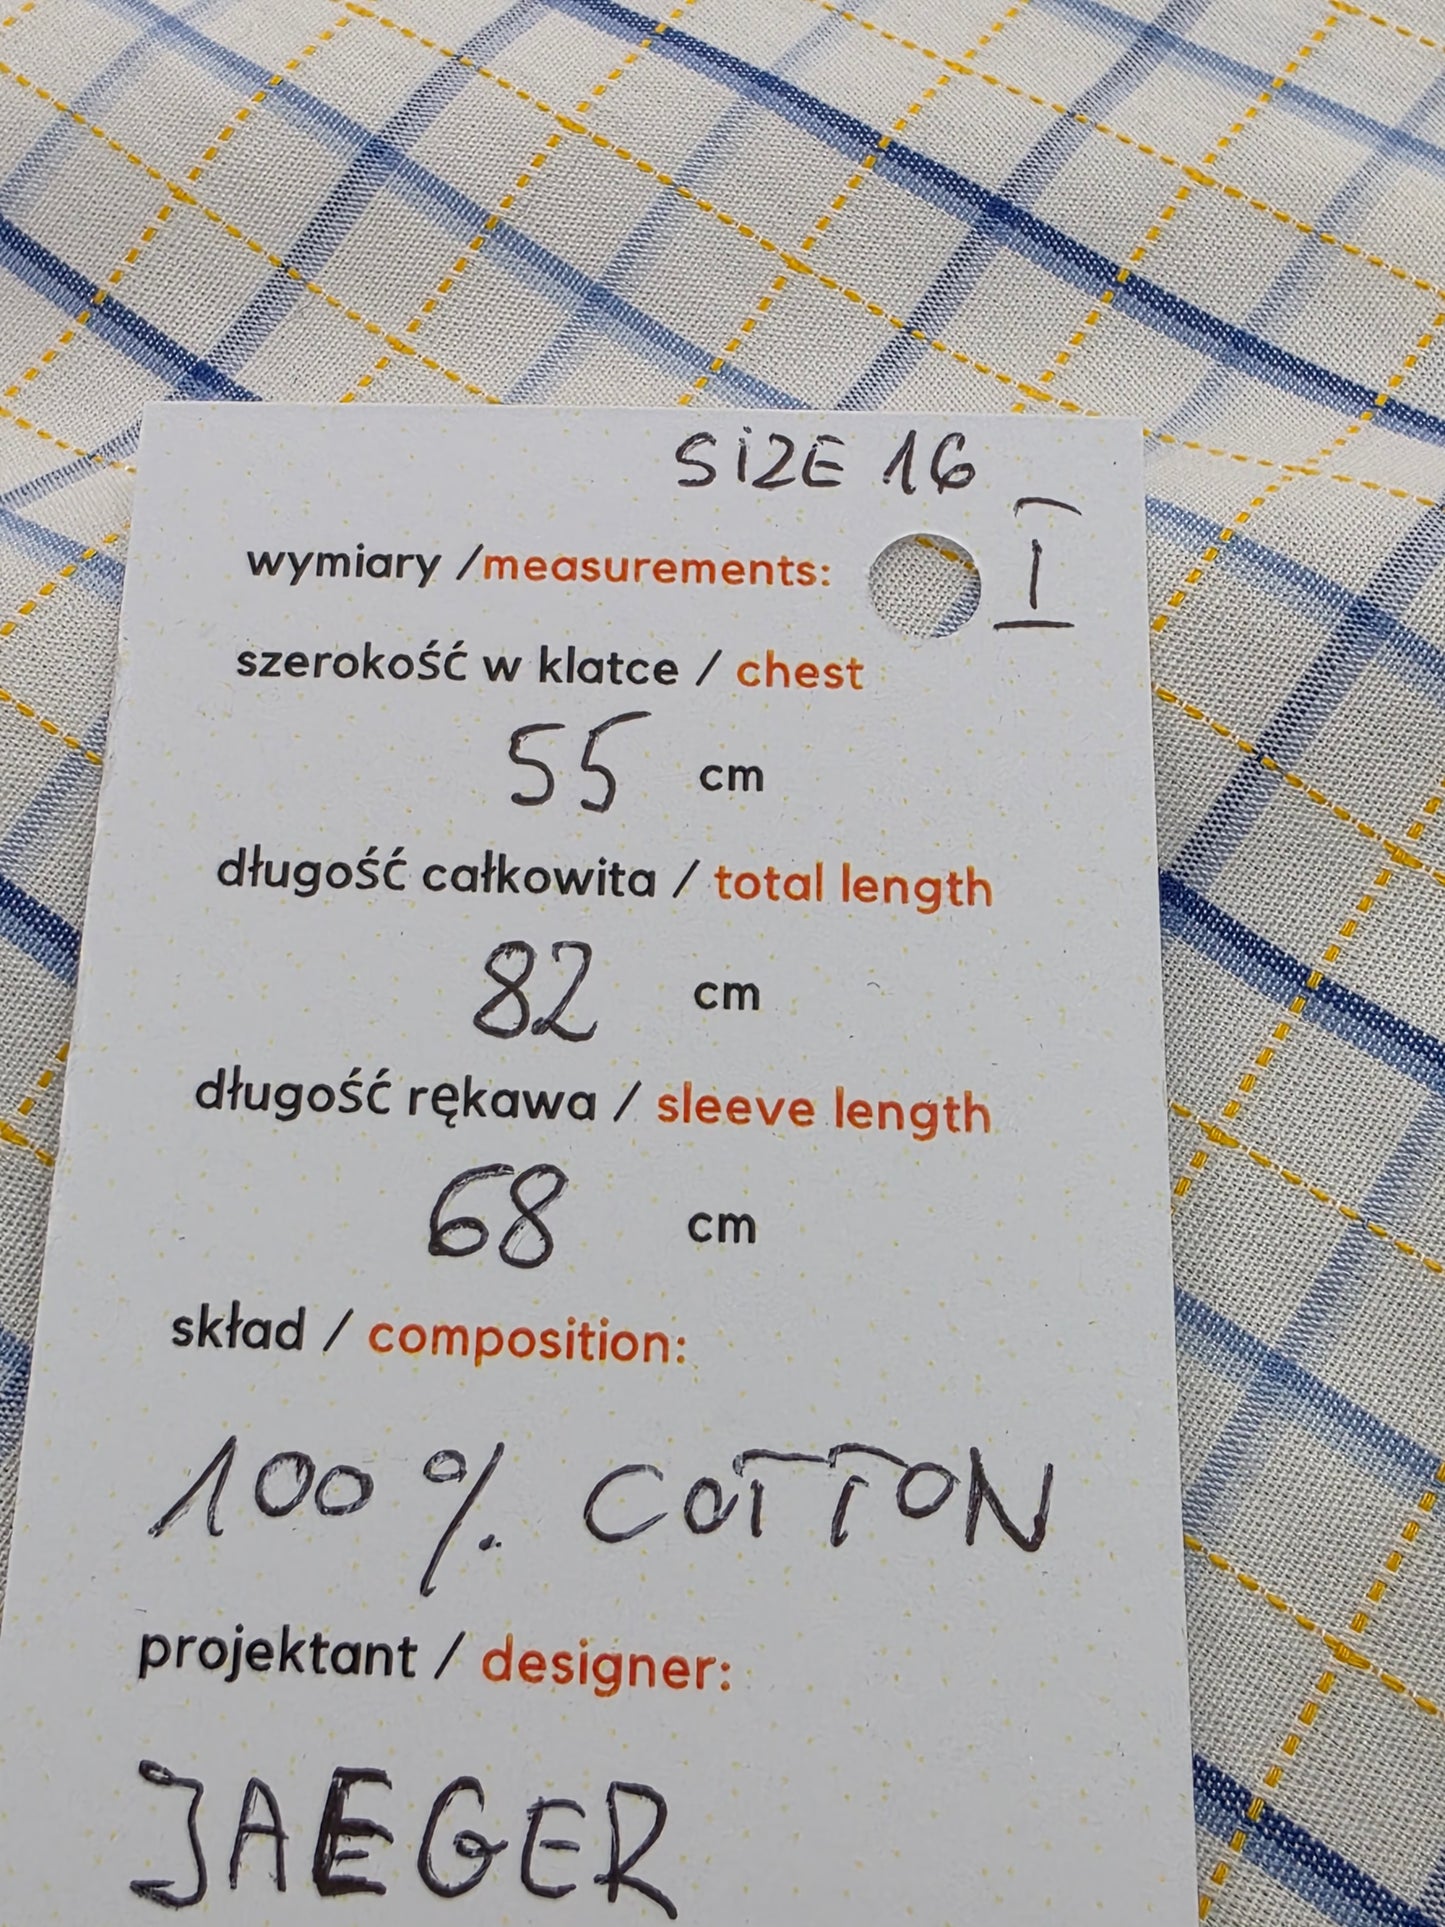 SiZE 16
I
wymiary /measurements:
szerokość w klatce / chest
55 cm
długość całkowita / total length
82 cm
długość rękawa / sleeve length
68 cm
skład / composition:
100 % COTTON
projektant / designer:
JAEGER